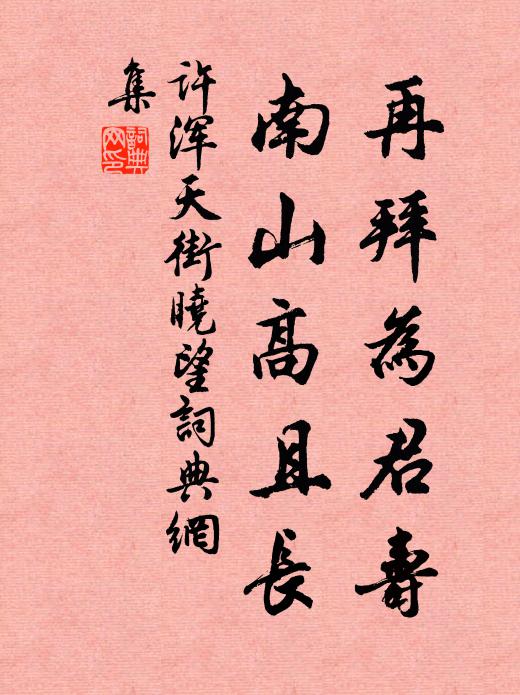 再拜為君壽
南山高且長
许浑天街曉望詞典網
集
詞典
网印